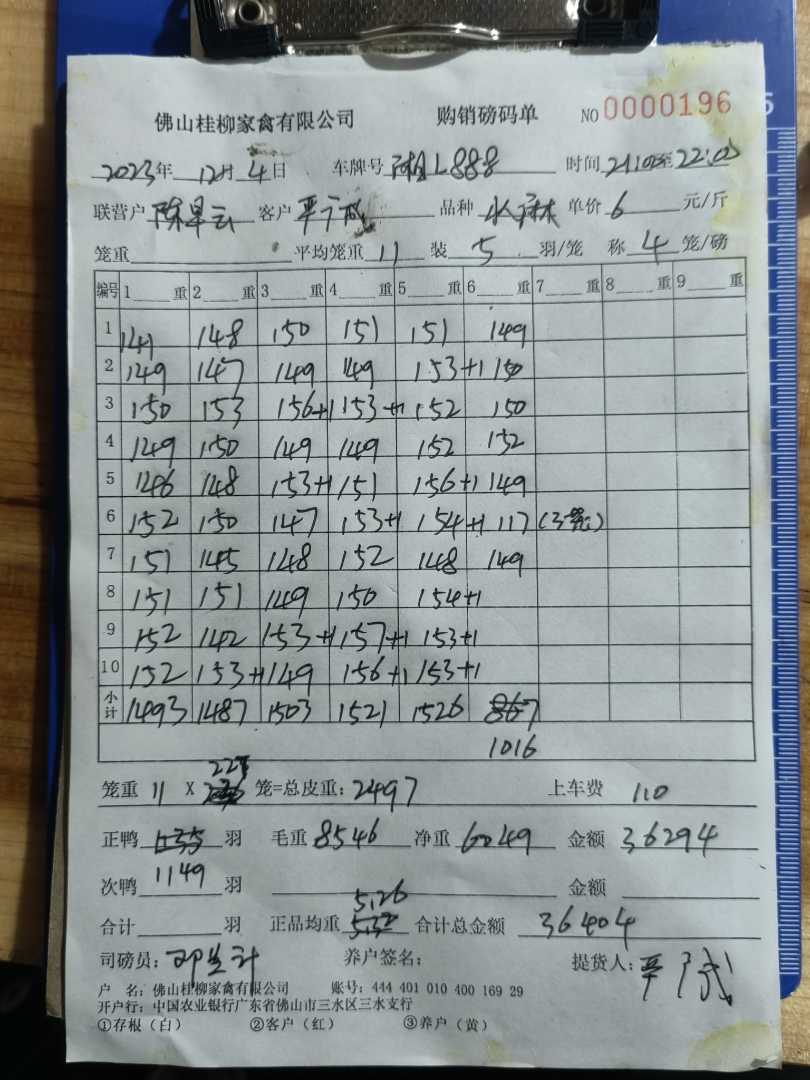 佛山桂柳家禽有限公司 购销磅码单 NO 0000196
2023年 12月 4日 车牌号 湘L888 时间 21:00至22:00
联营户 陈早云 客户 品种 单价 6 元/斤
笼重 平均笼重 11 装 5 羽/笼 称 4 笼/磅
编号 1 重 2 重 3 重 4 重 5 重 6 重 7 重 8 重 9 重
1 141 148 150 151 151 149
2 149 147 149 149 153+1 150
3 150 153 156+1 153+1 152 150
4 149 150 149 149 152 152
5 146 148 153+1 151 156+1 149
6 152 150 147 153+1 154+1 117 (3笼)
7 151 145 148 152 148 149
8 151 151 149 150 154+1
9 152 142 153+1 157+1 153+1
10 152 153+1 149 156+1 153+1
小计 1493 1487 1503 1521 1526 867
1016
笼重 11 X 227 笼=总皮重: 2497 上车费 110
正鸭 1135 羽 毛重 8546 净重 6049 金额 36294
次鸭 1149 羽 金额
5.26
合计 羽 正品均重 5.32 合计总金额 36404
司磅员: 养户签名: 提货人:
户 名: 佛山桂柳家禽有限公司 账号: 444 401 010 400 169 29
开户行: 中国农业银行广东省佛山市三水区三水支行
①存根（白） ②客户（红） ③养户（黄）